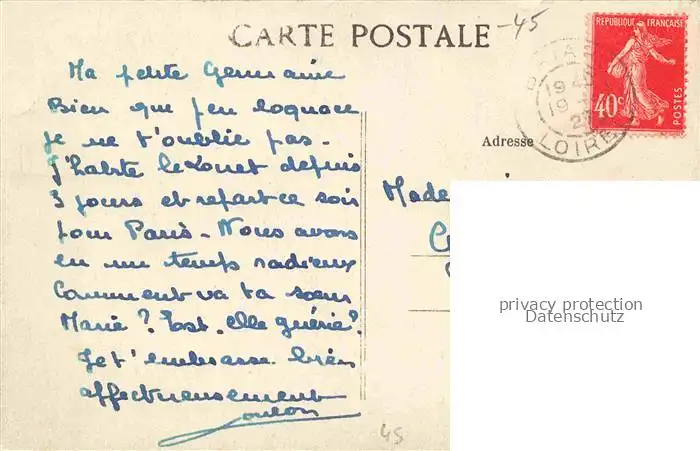 -45
CARTE POSTALE
REPUBLIQUE FRANÇAISE
40c
POSTES
LOIRE
Adresse
Ma petite Germaine
Bien que peu loquace
je ne t'oublie pas.
J'habite le Louet depuis
3 jours et repart ce soir
pour Paris. Nous avons
eu un temps radieux
Comment va ta soeur
Marie? Est. elle guérie?
Je t'embrasse bien
affectueusement
Made
privacy protection
Datenschutz
45